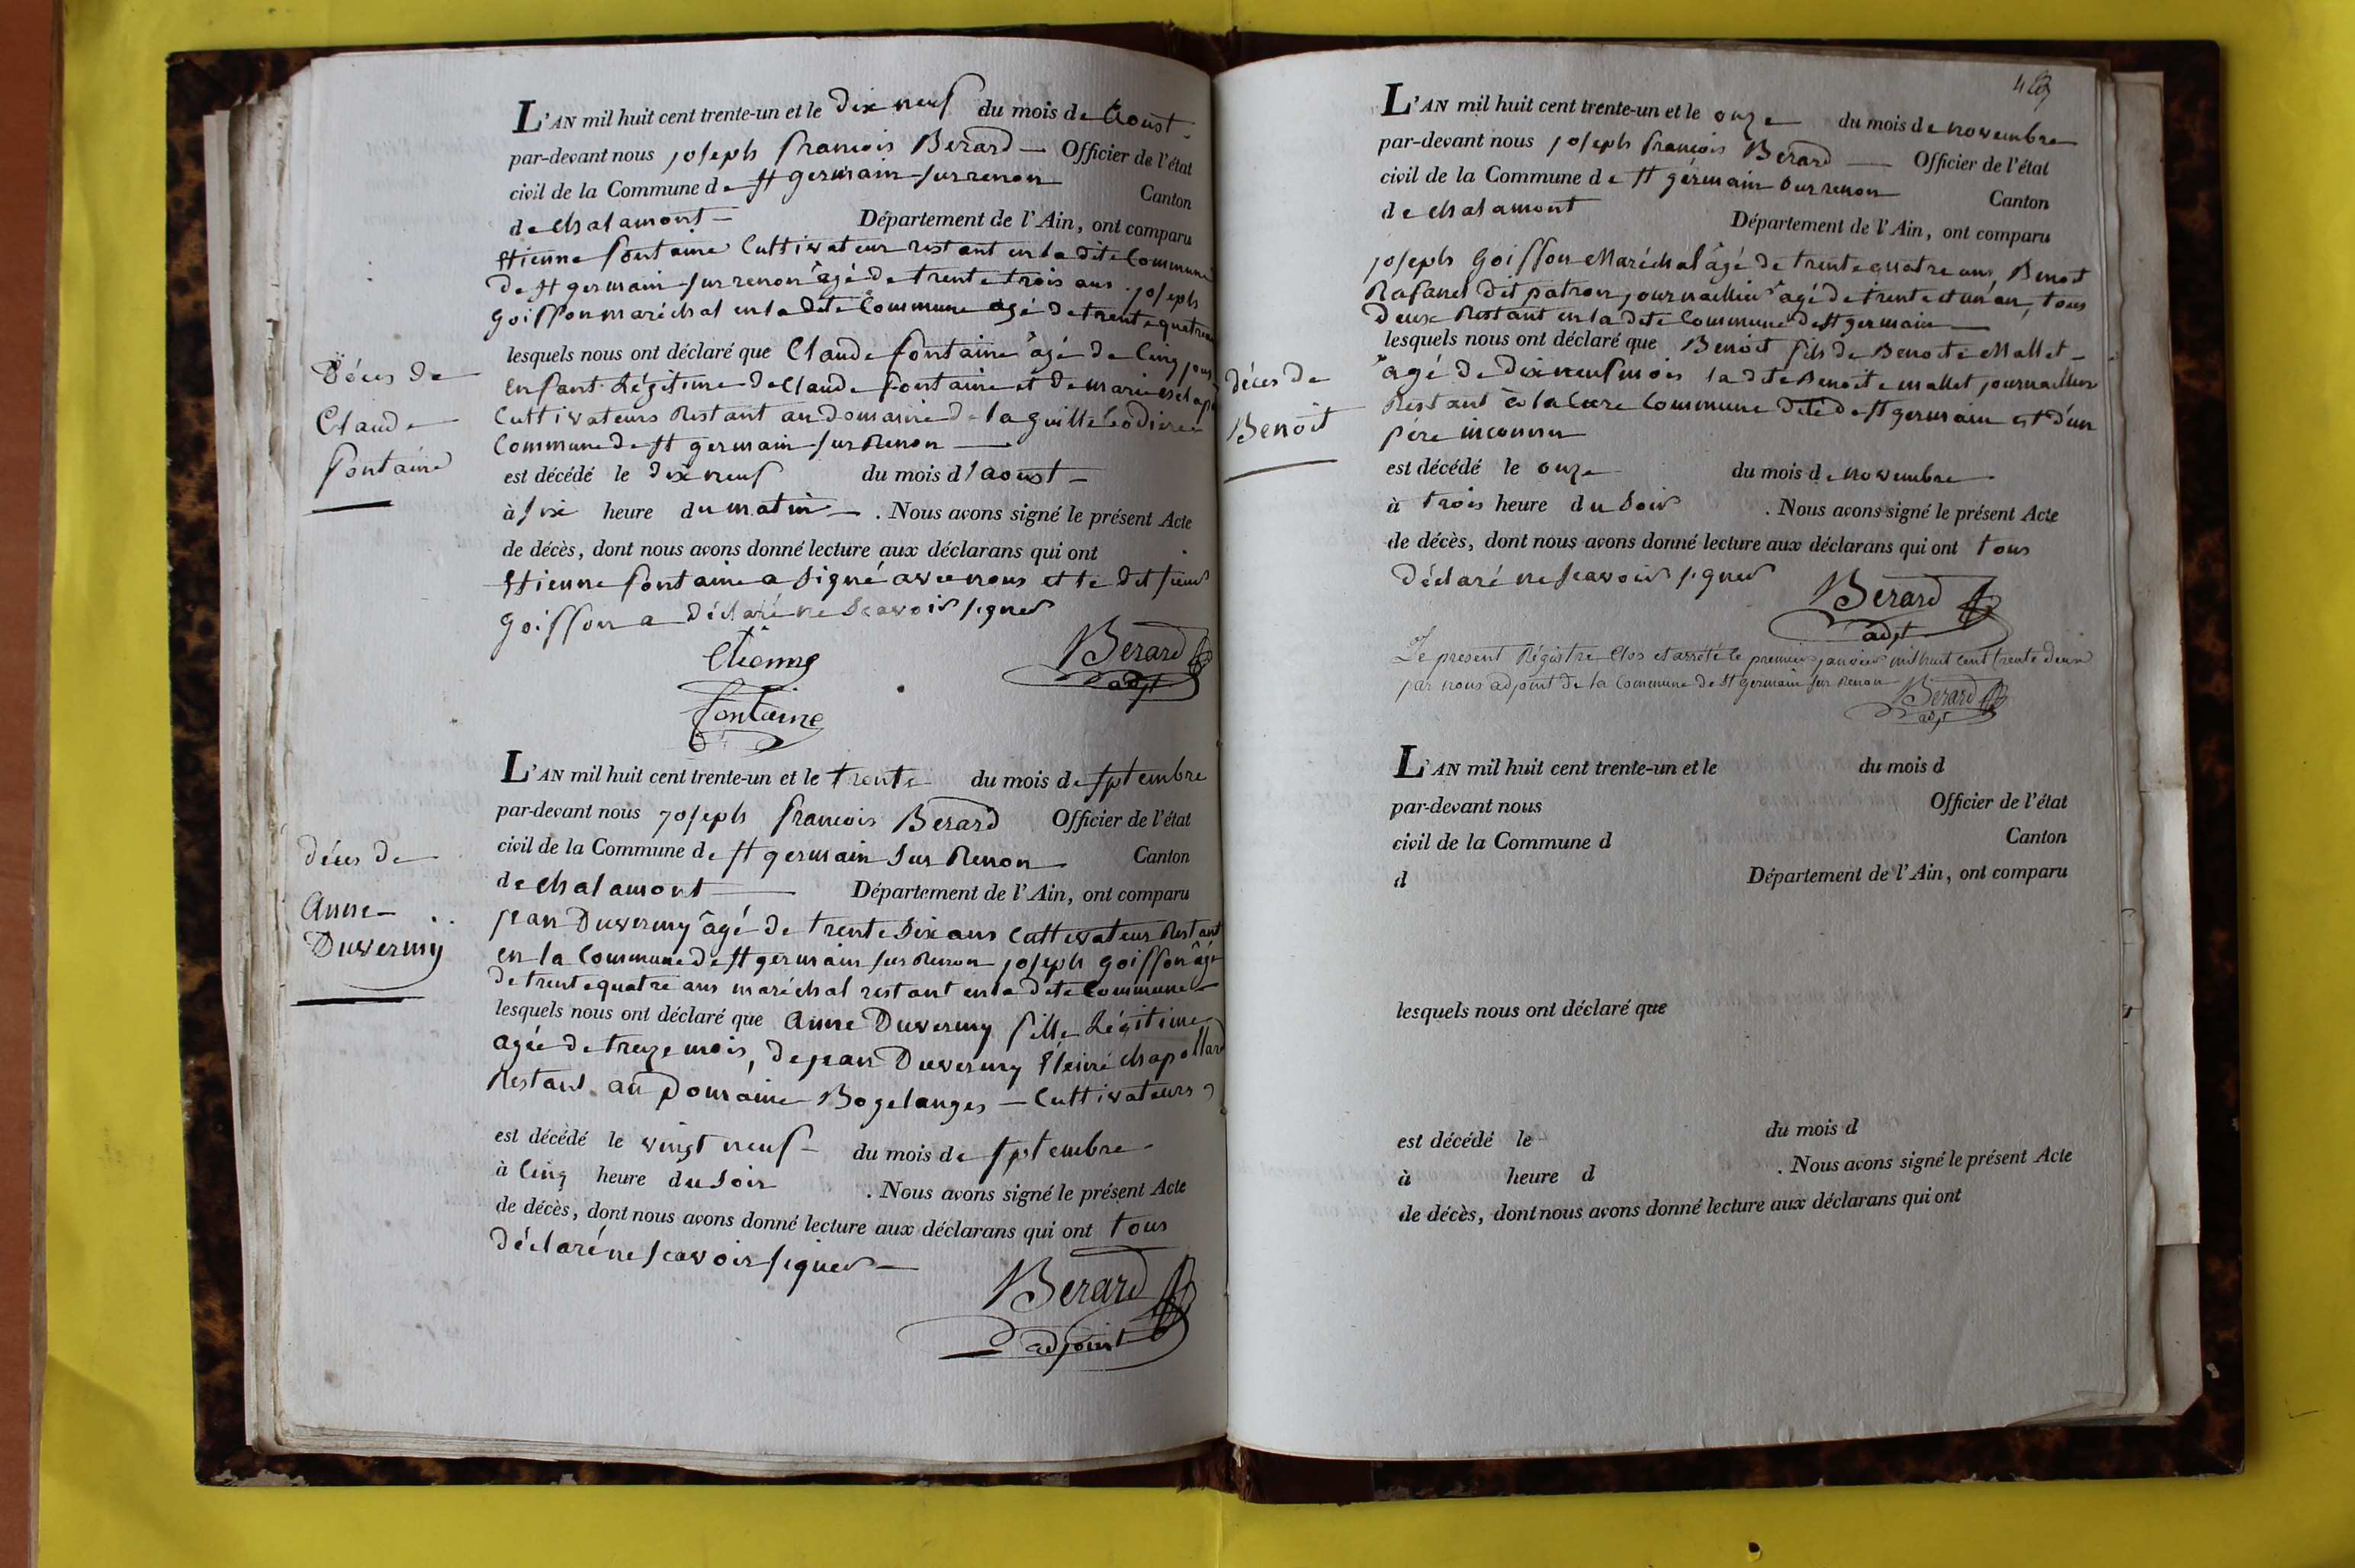 L'AN mil huit cent trente-un et le dix neuf du mois de Aoust
par-devant nous joseph francois Berard Officier de l'état
civil de la Commune de st germain sur renon Canton
de chalamont Département de l'Ain, ont comparu
Etienne fontaine Cultivateur restant en la dite Commune
de st germain sur renon âgé de trente trois ans. joseph
goiffon maréchal en la dite Commune agé de trente quatre ans
lesquels nous ont déclaré que Claude fontaine âgé de cinq jours
Enfant légitime de Claude fontaine et de marie
Décès de
Claude
fontaine
Cultivateurs Restant au domaine de la
Commune de st germain sur Renon
est décédé le dix neuf du mois d'aoust
à six heure du matin . Nous avons signé le présent Acte
de décès, dont nous avons donné lecture aux déclarans qui ont
Etienne fontaine a signé avec nous et le dit sieur
goiffon a déclaré ne scavoir signer
Etienne
fontaine
Berard
adjt
L'AN mil huit cent trente-un et le trente du mois de septembre
par-devant nous joseph francois Berard Officier de l'état
civil de la Commune de st germain sur Renon Canton
de chalamont Département de l'Ain, ont comparu
décès de
Anne
Duvernay
jean Duvernay âgé de trente six ans Cultivateur Restant
en la Commune de st germain sur Renon joseph goiffon âgé
de trente quatre ans maréchal restant en la dite Commune
lesquels nous ont déclaré que Anne Duvernay fille légitime
agée de treize mois, de jean Duvernay chapolland
Restant au Domaine Bogelanges Cultivateurs
est décédé le vingt neuf du mois de septembre
à cinq heure du soir . Nous avons signé le présent Acte
de décès, dont nous avons donné lecture aux déclarans qui ont tous
déclaré ne scavoir signer
Berard
adjoint
L'AN mil huit cent trente-un et le onze du mois de novembre
par-devant nous joseph francois Berard Officier de l'état
civil de la Commune de st germain sur renon Canton
de chalamont Département de l'Ain, ont comparu
joseph Goiffon Maréchal âgé de trente quatre ans, Benoit
Rafanel dit patron, journallier âgé de trente et un an, tous
deux Restant en la dite Commune de st germain
lesquels nous ont déclaré que Benoit fils de Benoite Mallet
décès de
Benoit
âgé de dix neuf mois la dite Benoite mallet journallière
Restant à la Cure Commune dite de st germain et d'un
père inconnu
est décédé le onze du mois de novembre
à trois heure du soir . Nous avons signé le présent Acte
de décès, dont nous avons donné lecture aux déclarans qui ont tous
déclaré ne scavoir signer
Berard
adjt
Le present Régistre Clos et arrêté le premier janvier mil huit cent trente deux
par nous adjoint de la Commune de st germain sur Renon
Berard
adjt
L'AN mil huit cent trente-un et le du mois d
par-devant nous Officier de l'état
civil de la Commune d Canton
d Département de l'Ain, ont comparu
lesquels nous ont déclaré que
est décédé le du mois d
à heure d . Nous avons signé le présent Acte
de décès, dont nous avons donné lecture aux déclarans qui ont